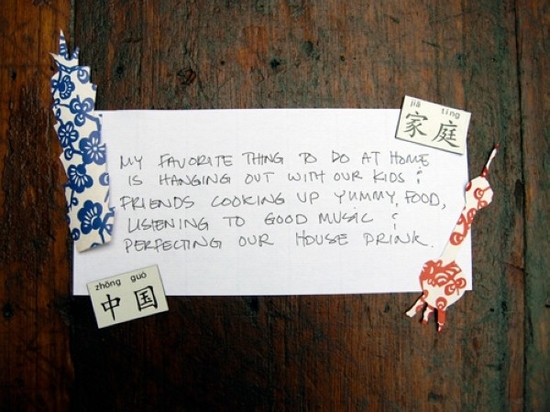 jiā tíng
家庭
MY FAVORITE THING TO DO AT HOME
IS HANGING OUT WITH OUR KIDS &
FRIENDS COOKING UP YUMMY FOOD,
LISTENING TO GOOD MUSIC &
PERFECTING OUR HOUSE DRINK.
zhōng guó
中国